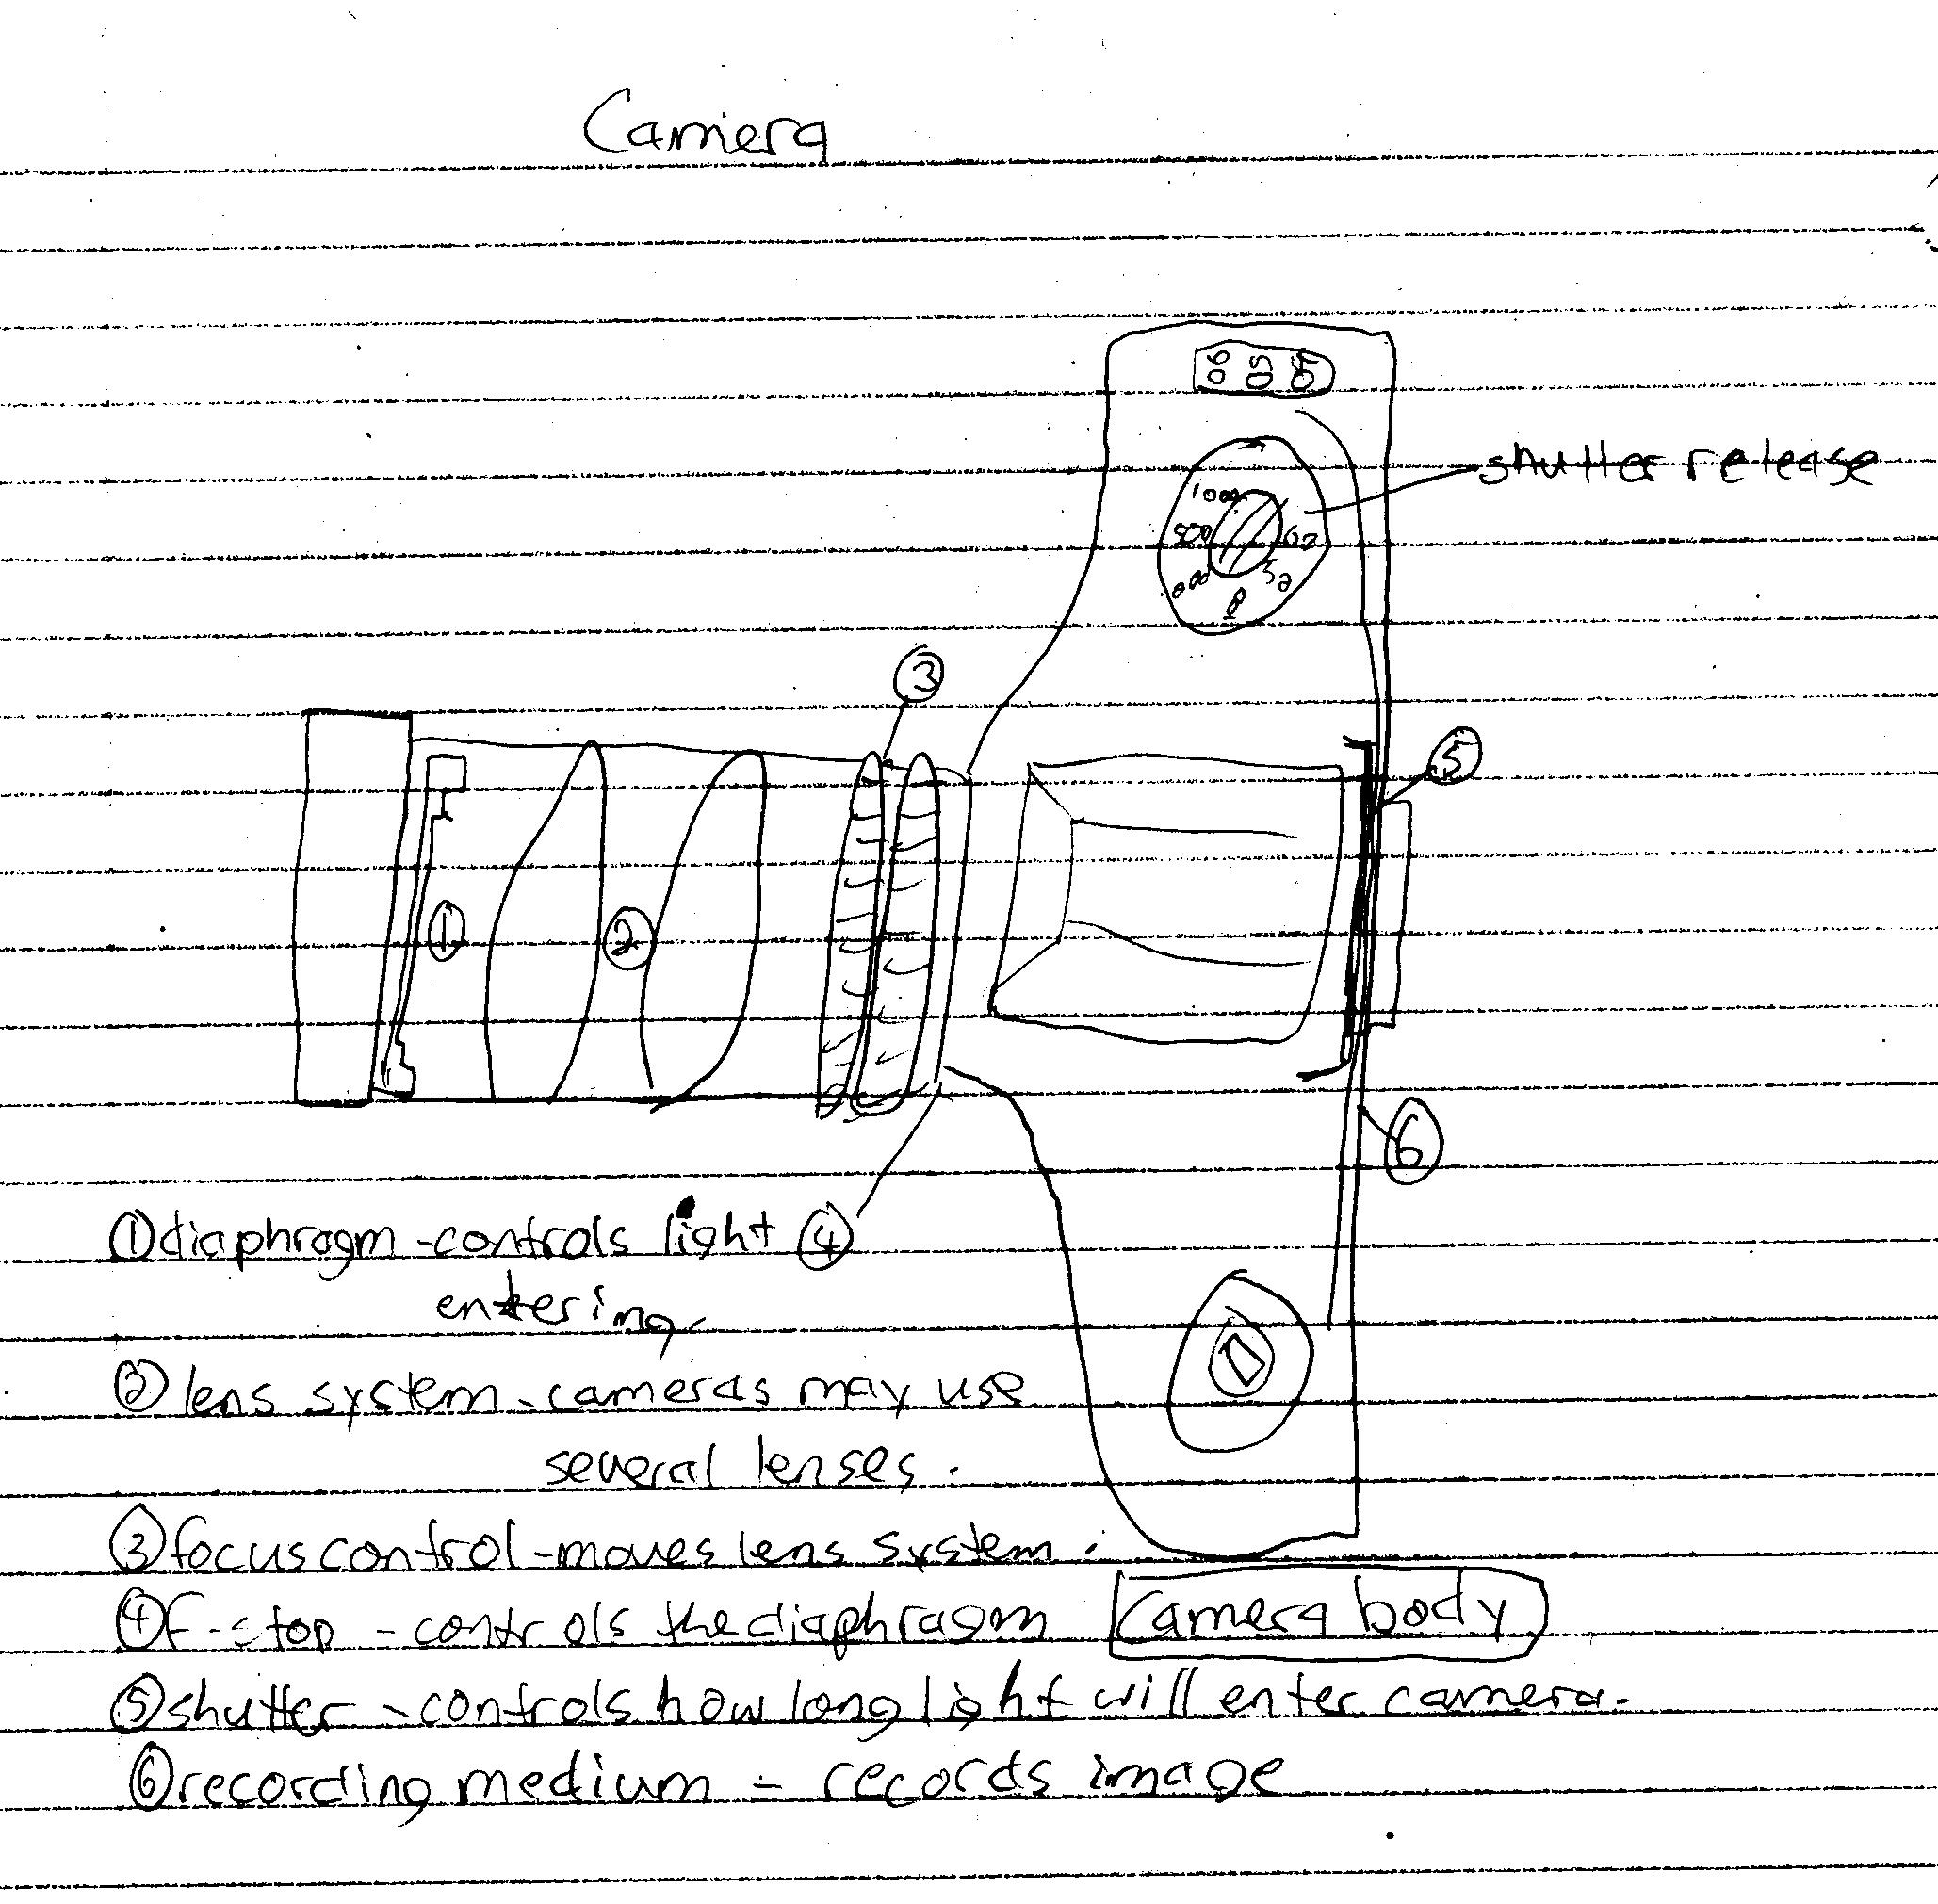 Camera
06 05 04
shutter release
1000
500
60
32
8
3
5
1
2
6
① diaphragm - controls light ④
entering.
② lens system - cameras may use
several lenses.
③ focus control - moves lens system.
④ F-stop - controls the diaphragm
Camera body
⑤ shutter - controls how long light will enter camera.
⑥ recording medium - records image